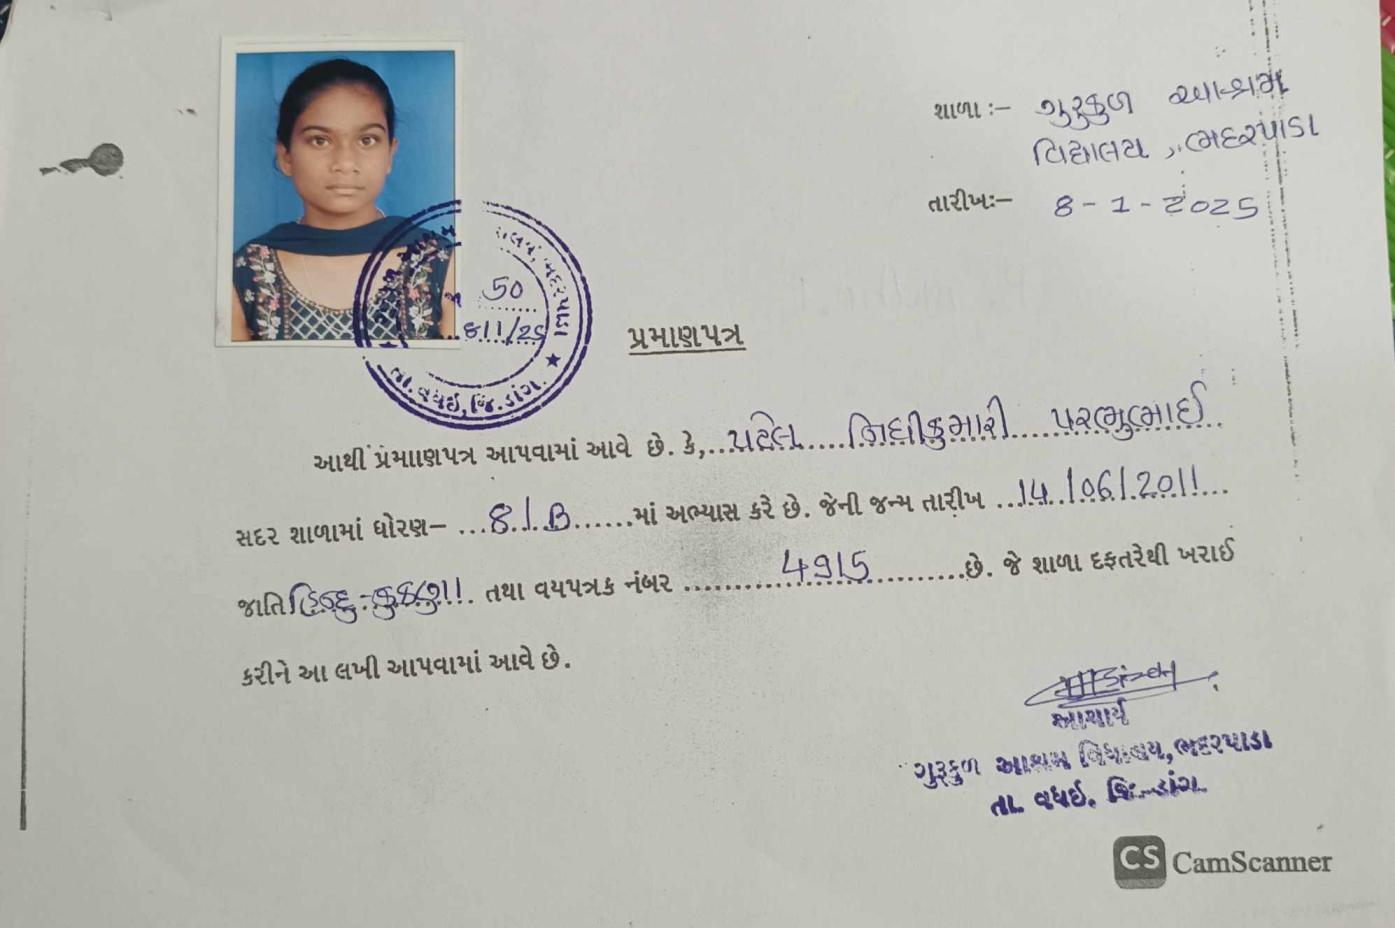 શાળા :- ગુરુકુળ આશ્રમ
વિદ્યાલય, ભદરપાડા
તારીખઃ- 8-1-2025
50
8/1/25
તા. વઘઈ, જિ. ડાંગ.
પ્રમાણપત્ર
આથી પ્રમાાણપત્ર આપવામાં આવે છે. કે, પટેલ નિધીકુમારી પરભુભાઈ
સદર શાળામાં ધોરણ– 8/B માં અભ્યાસ કરે છે. જેની જન્મ તારીખ 14/06/2011
જાતિ હિન્દુ-કુકણા. તથા વયપત્રક નંબર 4915 છે. જે શાળા દફતરેથી ખરાઈ
કરીને આ લખી આપવામાં આવે છે.
આચાર્ય
ગુરુકુળ આશ્રમ વિદ્યાલય, ભદરપાડા
તા. વઘઈ. જિ-ડાંગ.
CS CamScanner